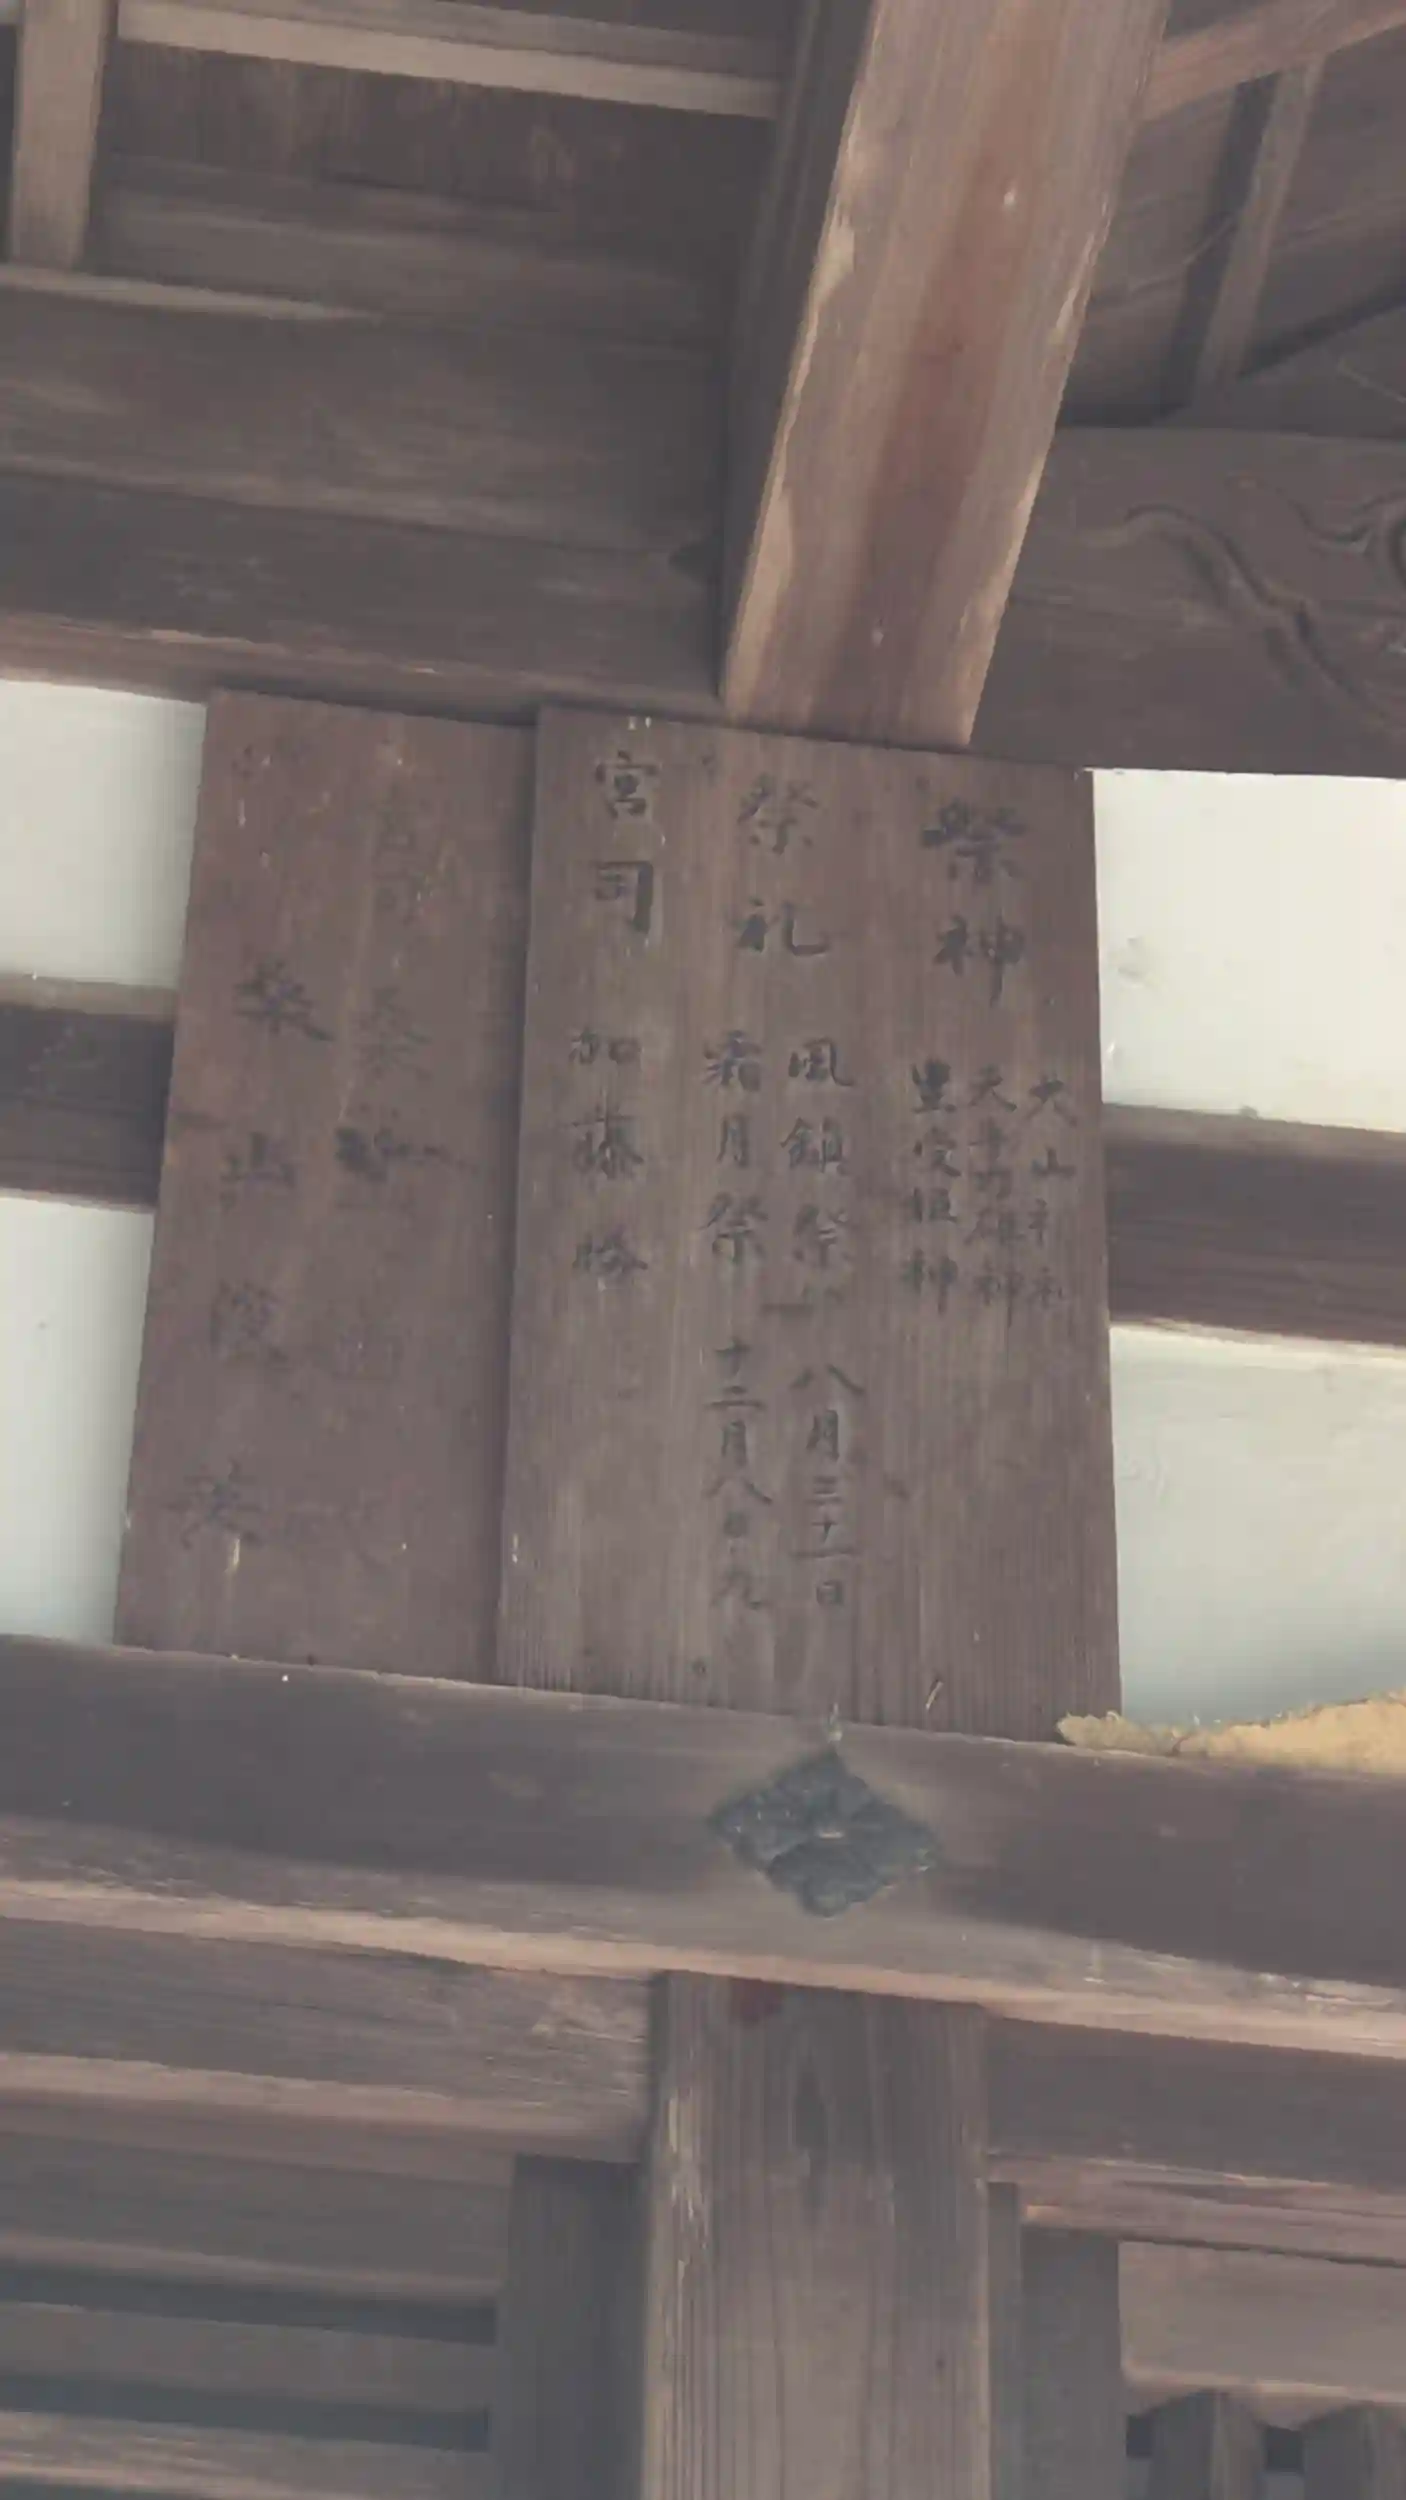 祭神
大山祇神
天手力雄神
豊受姫神
祭礼
風鎮祭 八月三十一日
霜月祭 十二月八日九
宮司 加藤勝
宮司
柴山俊